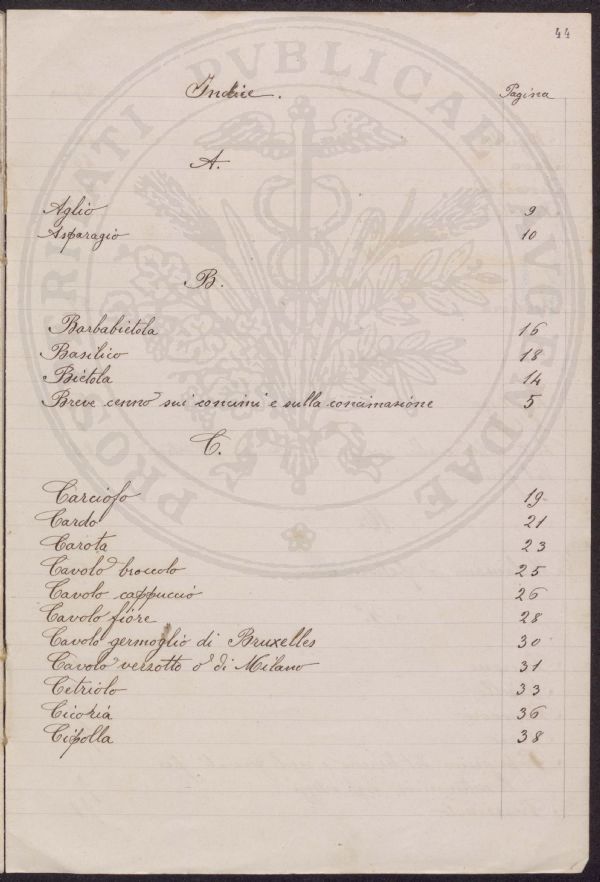 44
Indice. Pagina
A.
Aglio 9
Asparagio 10
B.
Barbabietola 16
Basilico 18
Bietola 14
Breve cenno sui concimi e sulla concimazione 5
C.
Carciofo 19
Cardo 21
Carota 23
Cavolo broccolo 25
Cavolo cappuccio 26
Cavolo fiore 28
Cavolo germoglio di Bruxelles 30
Cavolo verzotto o di Milano 31
Cetriolo 33
Cicoria 36
Cipolla 38
PROSPERITATI PVBLICAE AVGENDAE